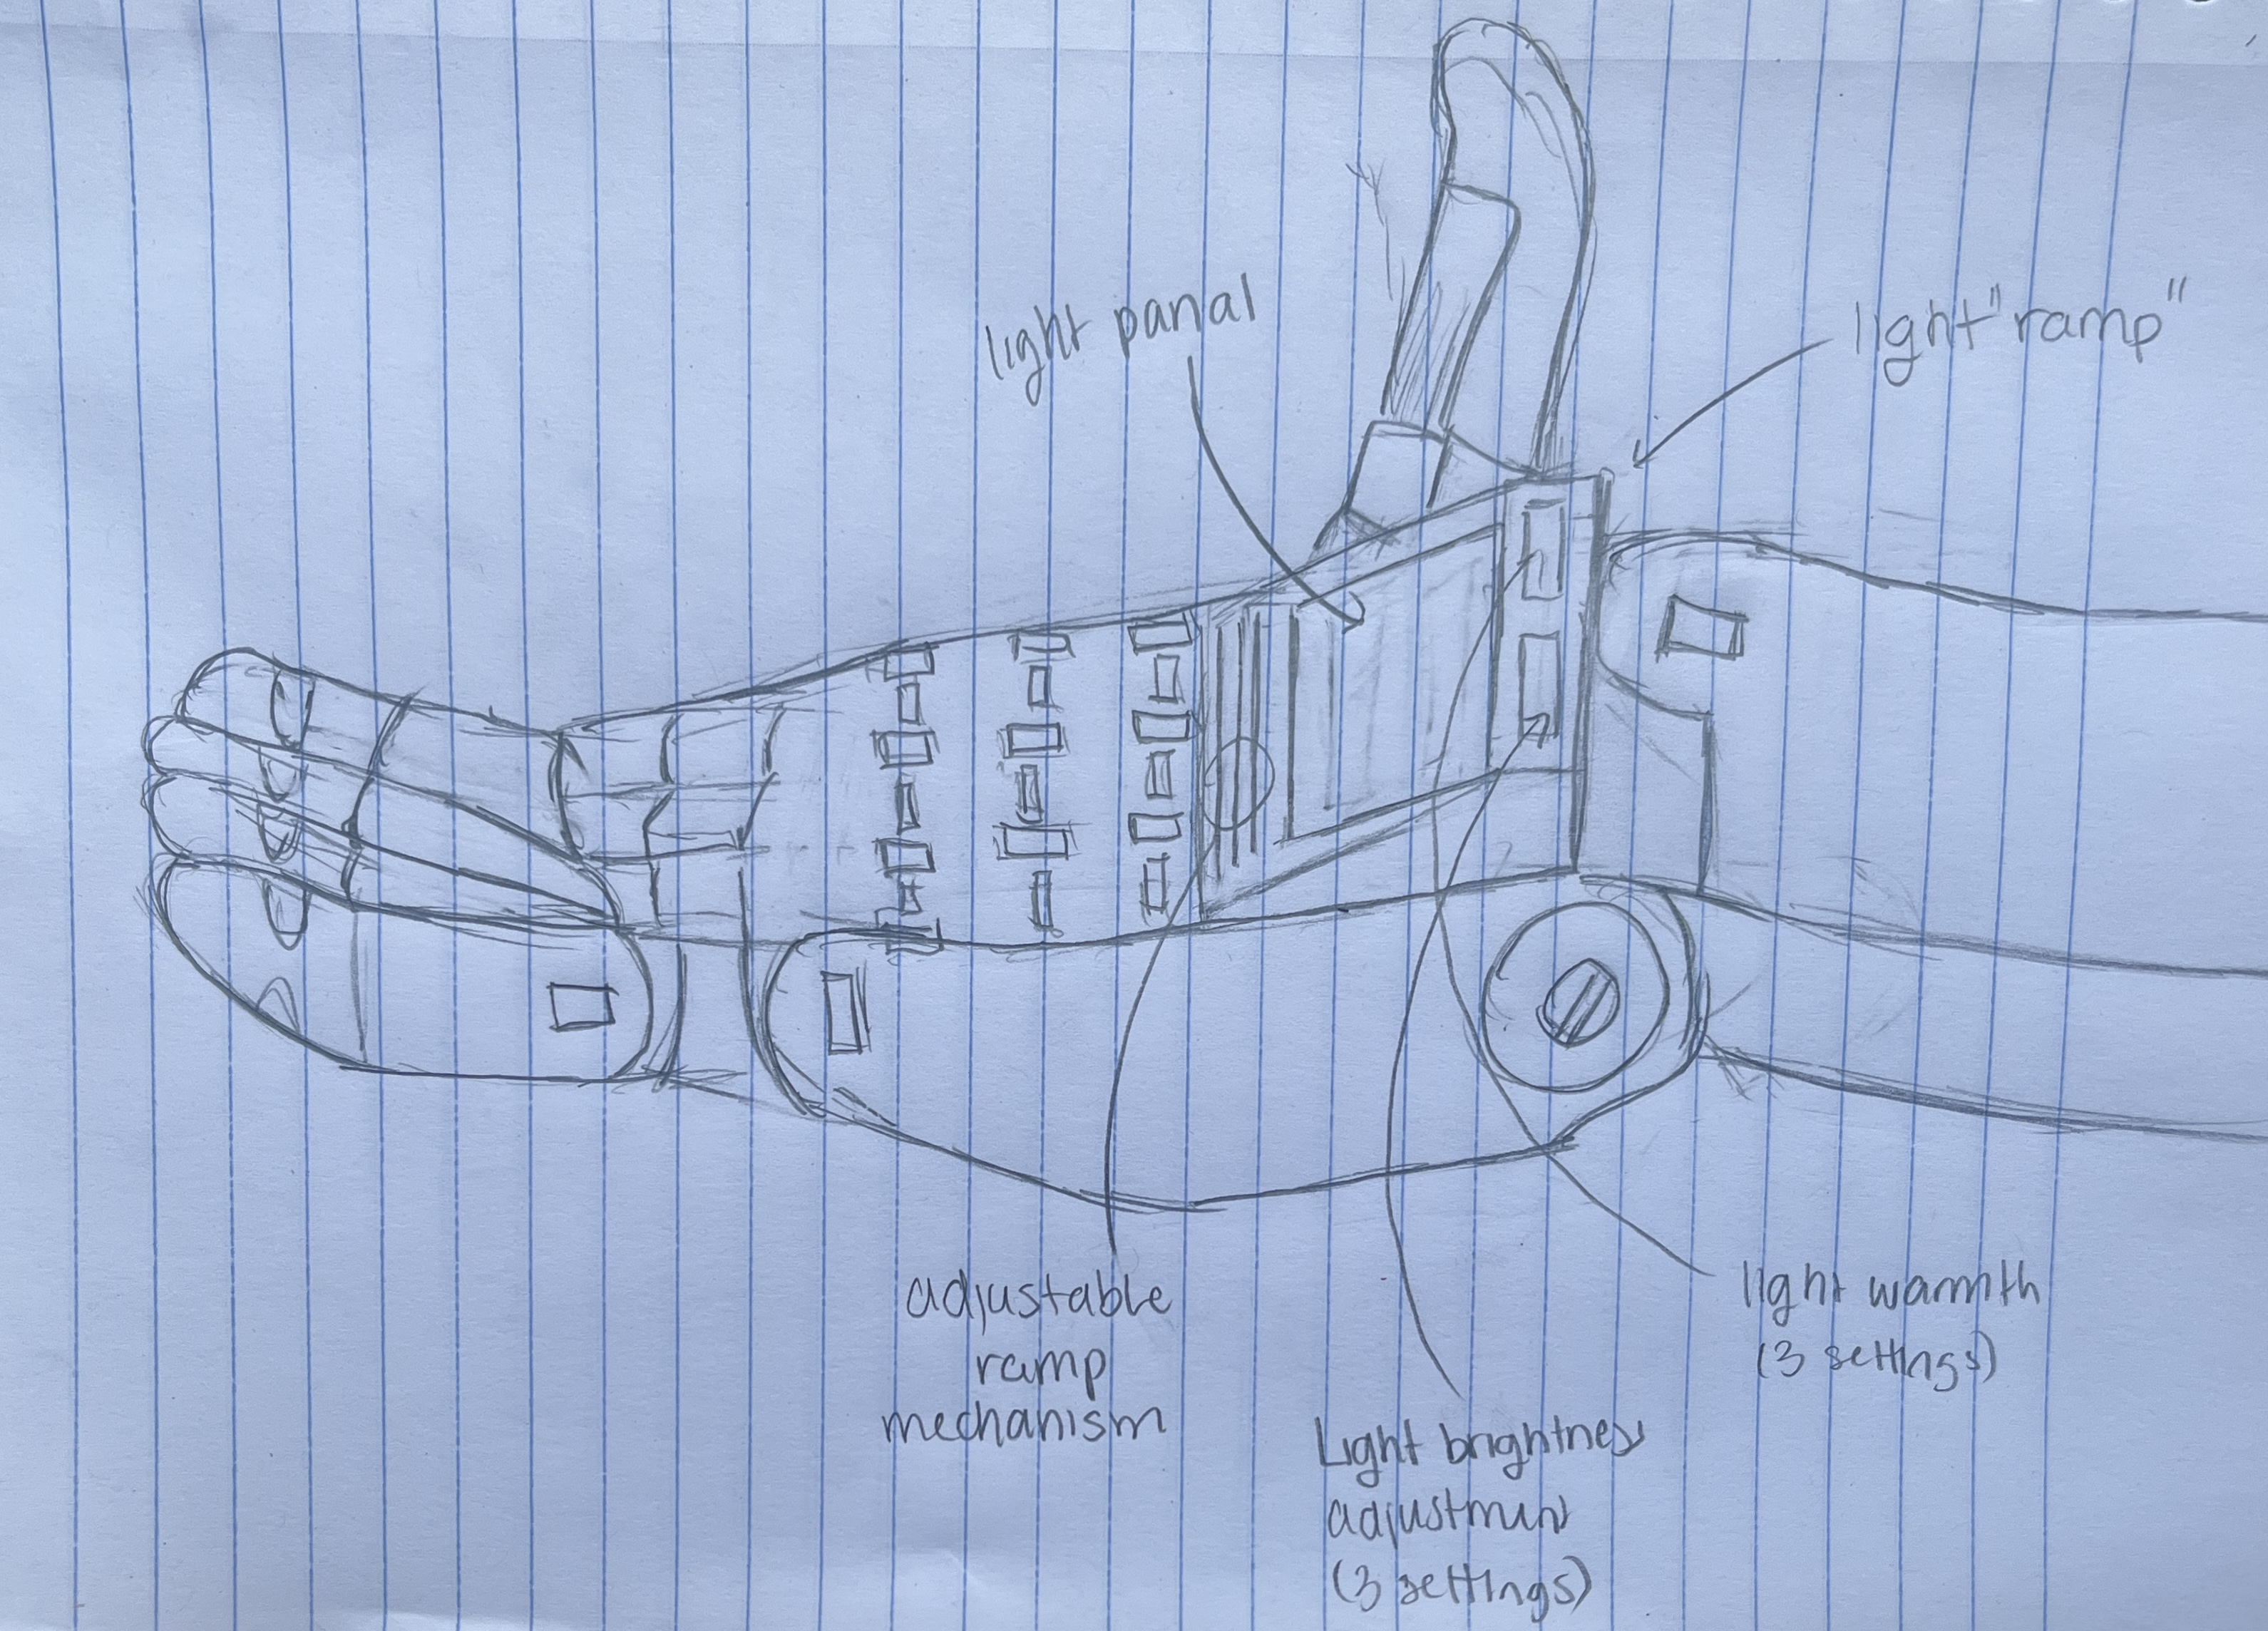 light panal
light "ramp"
adjustable
ramp
mechanism
Light brightness
adjustment
(3 settings)
light warmth
(3 settings)